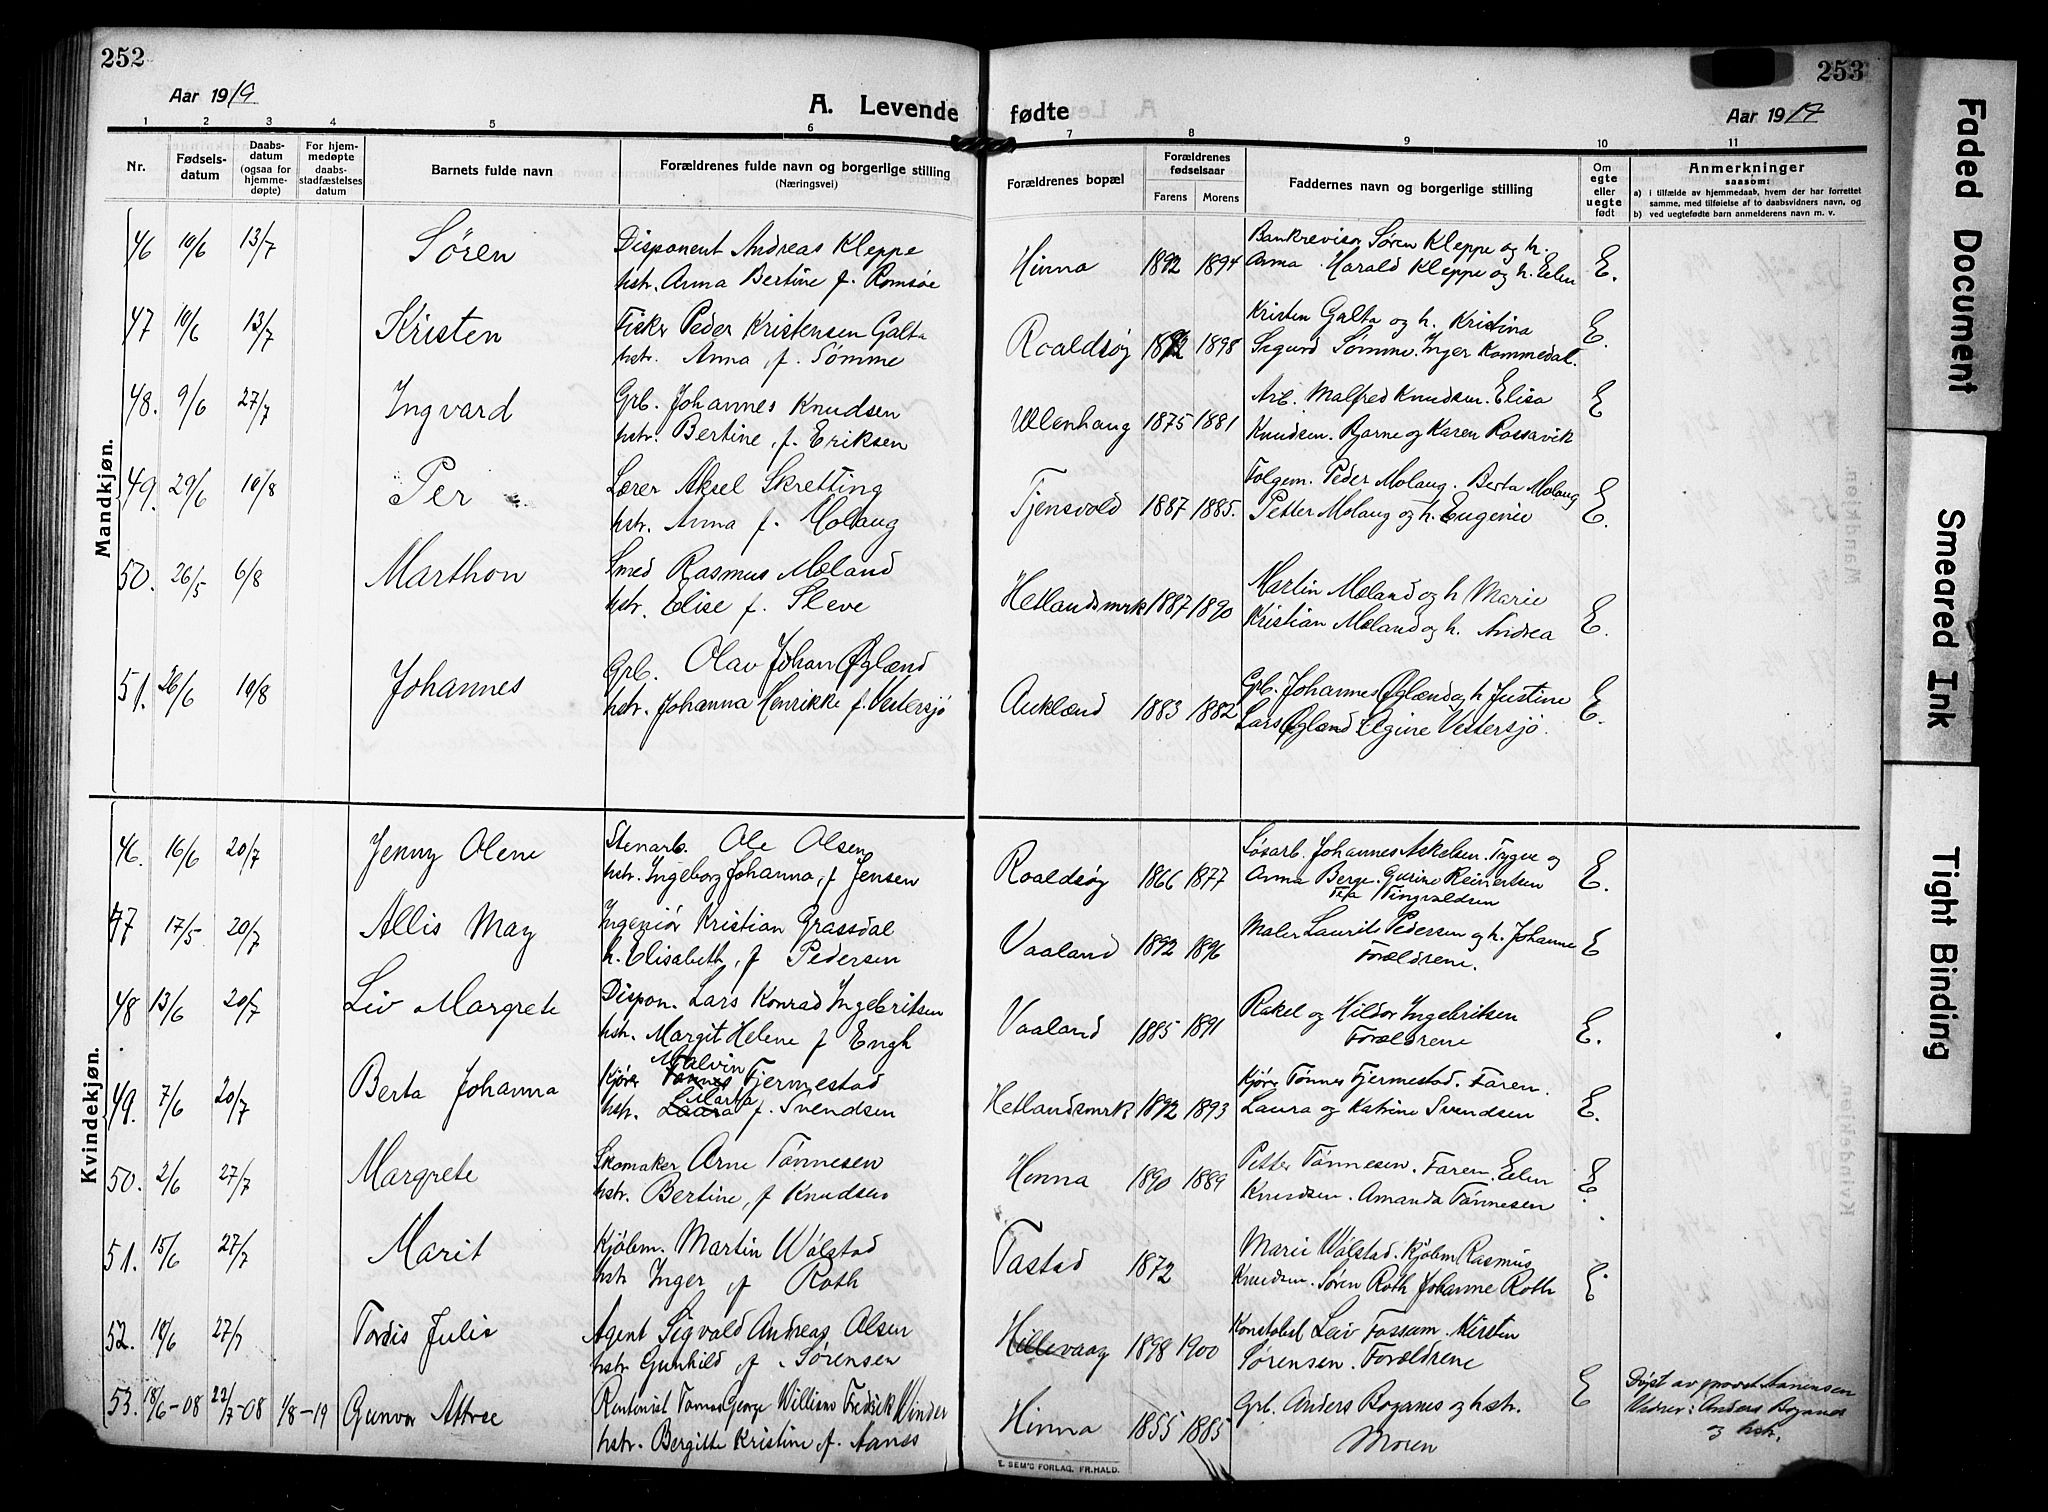 252
253
Aar 1919
A. Levende fødte
Aar 1919
1 2 3 4 5 6 7 8 9 10 11
Nr.
Fødsels-
datum
Daabs-
datum
(ogsaa for
hjemme-
døpte)
For hjem-
medøpte
daabs-
stadfæstelses
datum
Barnets fulde navn
Forældrenes fulde navn og borgerlige stilling
(Næringsvei)
Forældrenes bopæl
Forældrenes
fødselsaar
Farens Morens
Faddernes navn og borgerlige stilling
Om
egte
eller
uegte
født
Anmerkninger
saasom:
a) i tilfælde av hjemmedaab, hvem der har forrettet
samme, med tilføielse af to daabsvidners navn, og
b) ved uegtefødte barn anmelderens navn m. v.
Mandkjøn.
46 10/6 13/7 Søren Disponent Andreas Kleppe
hstr. Anna Bertine f. Romsøe
Hinna 1892 1894 Bankrevisor Søren Kleppe og h.
Anna. Harald Kleppe og h. Elen E.
47 10/6 13/7 Kristen Fisker Peder Kristensen Galta
hstr. Anna f. Sømme
Roaldsøy 1892 1898 Kristen Galta og h. Kristina
Sigurd Sømme. Inger Kommedal. E.
48. 9/6 27/7 Ingvard Grb. Johannes Knudsen
hstr. Bertine, f. Eriksen
Ullenhaug 1875 1881 Arb. Malfred Knudsen. Elisa
Knudsen. Bjarne og Karen Rossavik E
49. 29/6 10/8 Per Lærer Aksel Skretting
hstr. Anna f. Molaug
Tjensvold 1887 1885. Folgem. Peder Molaug. Berta Molaug
Petter Molaug og h. Eugenie E.
50. 26/5 6/8 Marthon Smed Rasmus Mæland
hstr. Elise f. Sleve
Hetlandsmrk 1887 1890 Martin Mæland og h Marie
Kristian Mæland og h. Andrea E.
51. 26/6 10/8 Johannes Grb. Olav Johan Øglænd
hstr. Johanna Henrikke f. Vestersjø
Auklænd 1883 1882 Grb. Johannes Øglænd og h Justine
Lars Øglænd Elgine Vestersjø. E.
Kvindekjøn.
46. 16/6 20/7 Jenny Olene Stenarb. Ole Olsen
hstr. Ingeborg Johanna, f Jensen
Roaldsøy 1866 1877 Søsarb. Johannes Askelsen. Trygve og
Anna Berge. Gurine Reinertsen
Tea Tingvaldsen E.
47 17/5 20/7 Allis May Ingeniør Kristian Grassdal
h. Elisabeth, f Pedersen
Vaaland 1892 1896 Maler Laurits Pedersen og h. Johanne
Forældrene. E
48 13/6 20/7 Liv Margrete Dispon. Lars Konrad Ingebritsen
hstr. Margit Helene f Engh
Vaaland 1885 1891 Rakel og Hildor Ingebritsen
Forældrene E.
49. 7/6 20/7 Berta Johanna Malvin
Kjører Tønnes Fjermestad
Marta
hstr. Laura f. Svendsen
Hetlandsmrk 1892 1893 Kjører Tønnes Fjermestad. Faren.
Laura og Katrine Svendsen E.
50. 2/6 27/7 Margrete Skomaker Arne Tønnesen
hstr. Bertine, f Knudsen
Hinna 1890 1889 Petter Tønnesen. Faren. Elen
Knudsen. Amanda Tønnesen E.
51. 15/6 27/7 Marit Kjøbm. Martin Wølstad
hstr Inger f Roth
Tastad 1872 Marie Wølstad. Kjøbm Rasmus
Knudsen. Søren Roth Johanne Roth E
52. 18/6 27/7 Tordis Julie Agent Sigvald Andreas Olsen
hstr. Gunhild f. Sørensen
Hillevaag 1898 1900 Konstabel Leiv Fossum. Kirsten
Sørensen. Forældrene
53. 18/6-08 22/7-08 1/8-19 Gunvor Attree Rentenist Tomas George William Fredrik Winder
hstr. Bergitte Kristine f. Aanes
Hinna 1855 1885 Grb. Anders Boganes og hstr.
Moren E Døpt av provst Aanensen
Vidner: Anders Boganes
og hstr.
E. SEM'S FORLAG, FR.HALD.
Faded Document
Smeared Ink
Tight Binding